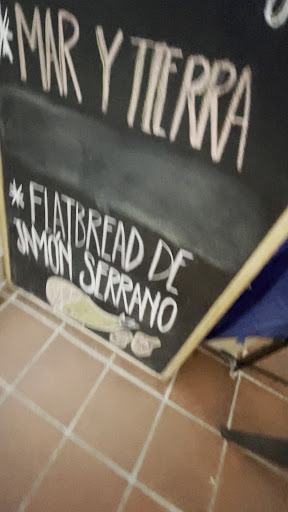 *MAR Y TIERRA
* FLATBREAD DE
JAMÓN SERRANO